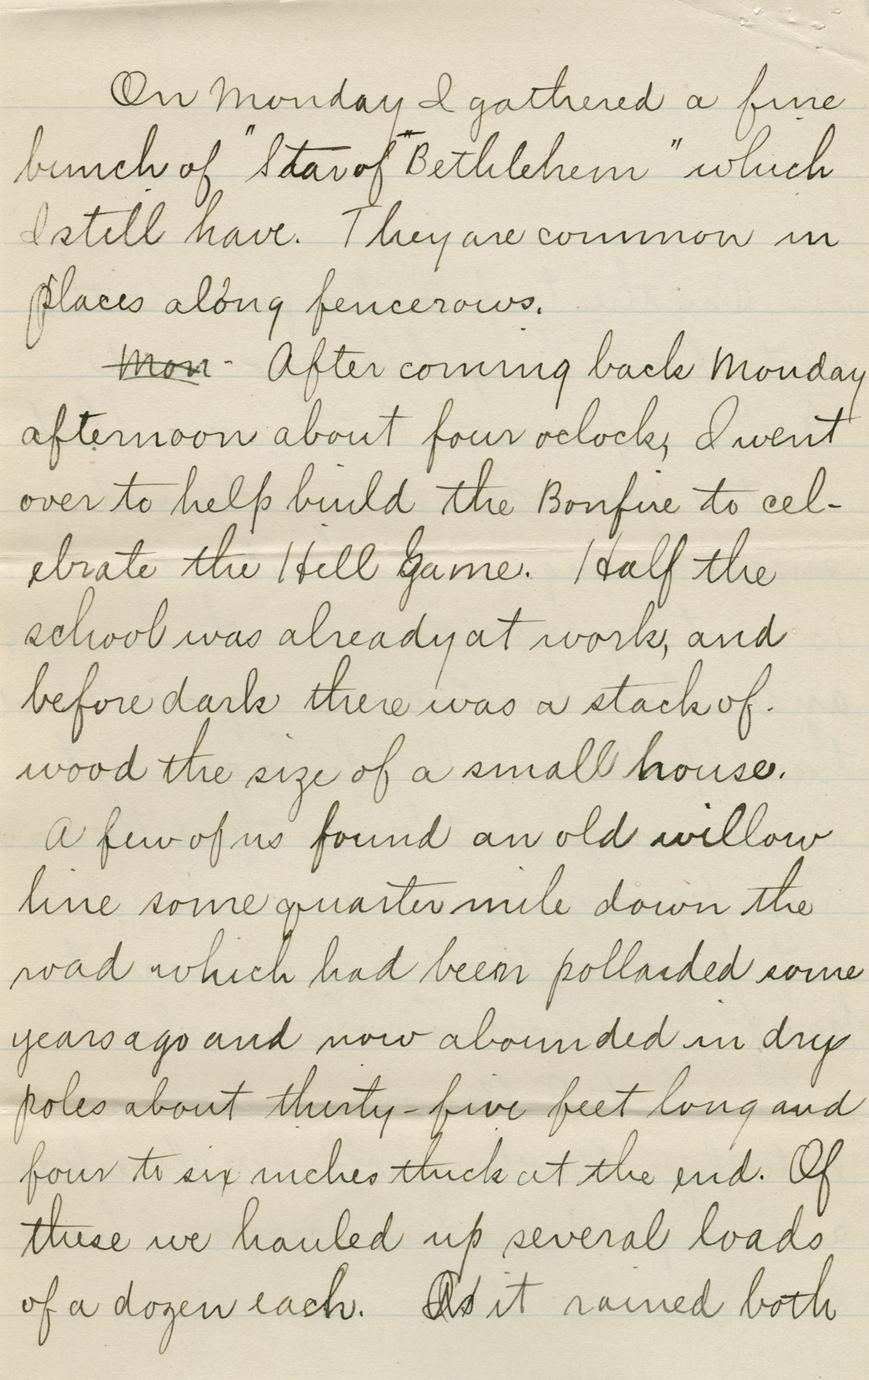 On Monday I gathered a fine
bunch of "Star of" Bethlehem" which
I still have. They are common in
places along fencerows.
Mon- After coming back Monday
afternoon about four oclock, I went
over to help build the Bonfire to cel-
ebrate the Hill Game. Half the
school was already at work, and
before dark there was a stack of
wood the size of a small house.
A few of us found an old willow
line some quarter mile down the
road which had been pollarded some
years ago and now abounded in dry
poles about thirty-five feet long and
four to six inches thick at the end. Of
these we hauled up several loads
of a dozen each. As it rained both